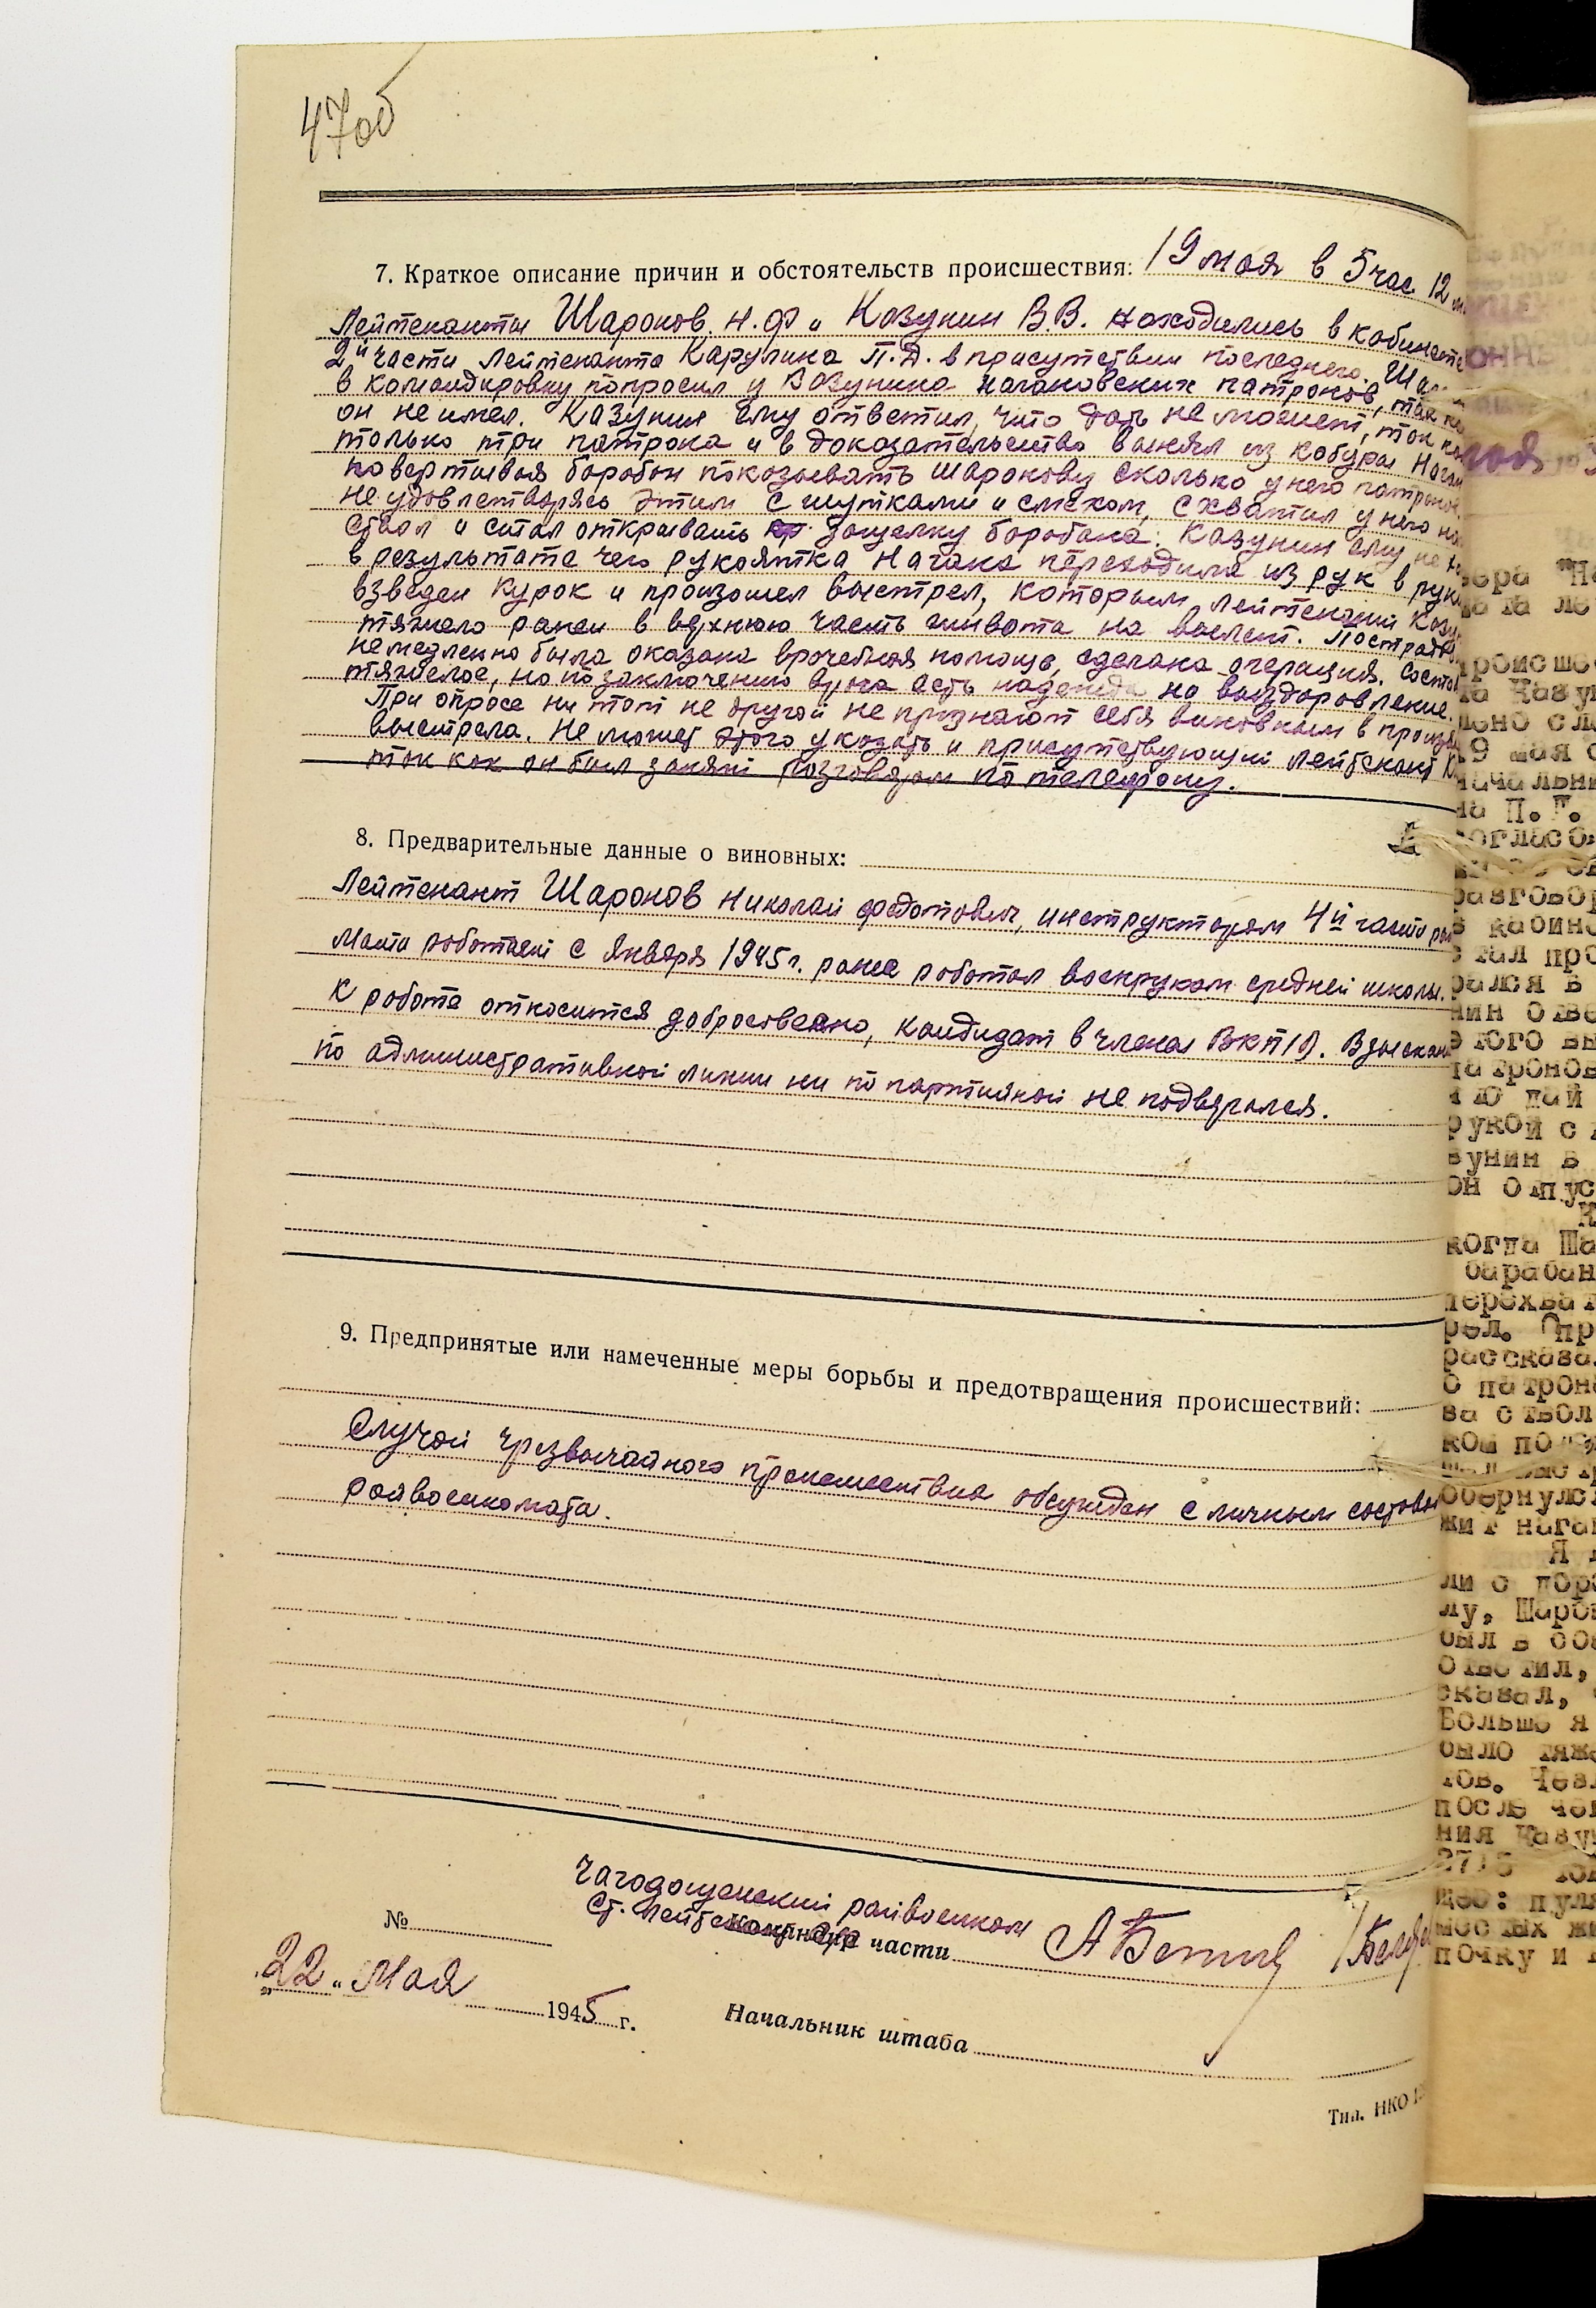 47об
7. Краткое описание причин и обстоятельств происшествия: 19 мая в 5 час. 12
Лейтенанты Шаронов Н.Ф и Казунин В.В. находились в кабинете
2й части лейтенанта Карулина П.Д. в присутствии последнего. Ша
в командировку попросил у Казунина нагановских патронов, так
он не имел. Казунин ему ответил, что дать не может, так
только три патрона и в доказательство вынял из кобуры Наган
повертывая барабан показывать Шаронову сколько у него патронов.
не удовлетворясь этим с шутками и смехом, схватил у него
ствол и стал открывать защелку барабана. Казунин ему не
в результате чего рукоятка Нагана переходила из рук в руки
взведен курок и произошел выстрел, которым лейтенант Казу
тяжело ранен в верхнюю часть живота на вылет. Пострадав
немедленно была оказана врачебная помощь, сделана операция. Состо
тяжелое, но по заключению врача есть надежда на выздоровление.
При опросе ни тот не другой не признают себя виновным в произв
выстрела. Не может этого указать и присутствующий лейтенант К
так как он был занят разговором по телефону.
8. Предварительные данные о виновных:
Лейтенант Шаронов Николай Федотович, инструктором 4й части
мата работает с января 1945 г. ранее работал военруком средней школы.
К работе относится добросовено, кандидат в члены ВКП/б/. Взыскан
по административной линии ни по партийной не подвергался.
9. Предпринятые или намеченные меры борьбы и предотвращения происшествий:
Случай чрезвычайного происшествия обсужден с личным состав
райвоенкомата.
Чагодощенский райвоенком
Ст. лейтенант
№ Командир части
"22" Мая 1945 г.
Начальник штаба
Тип. НКО
вера
происшес
19 мая
начальни
на П.Г.
согласо
разговор
в кабине
стал про
рался в
нин отве
этого вы
патронов
рукой с
зунин в
он опус
когда Ша
барабан
перехват
рел. Опр
рассказа
о патрон
за ствол
ком
обернулс
жит нага
Я
ли о
лу, Шаро
был в
ответил,
сказал,
Больше я
было тяж
тов. Чез
после че
ния Казу
щее: пуля
почку и